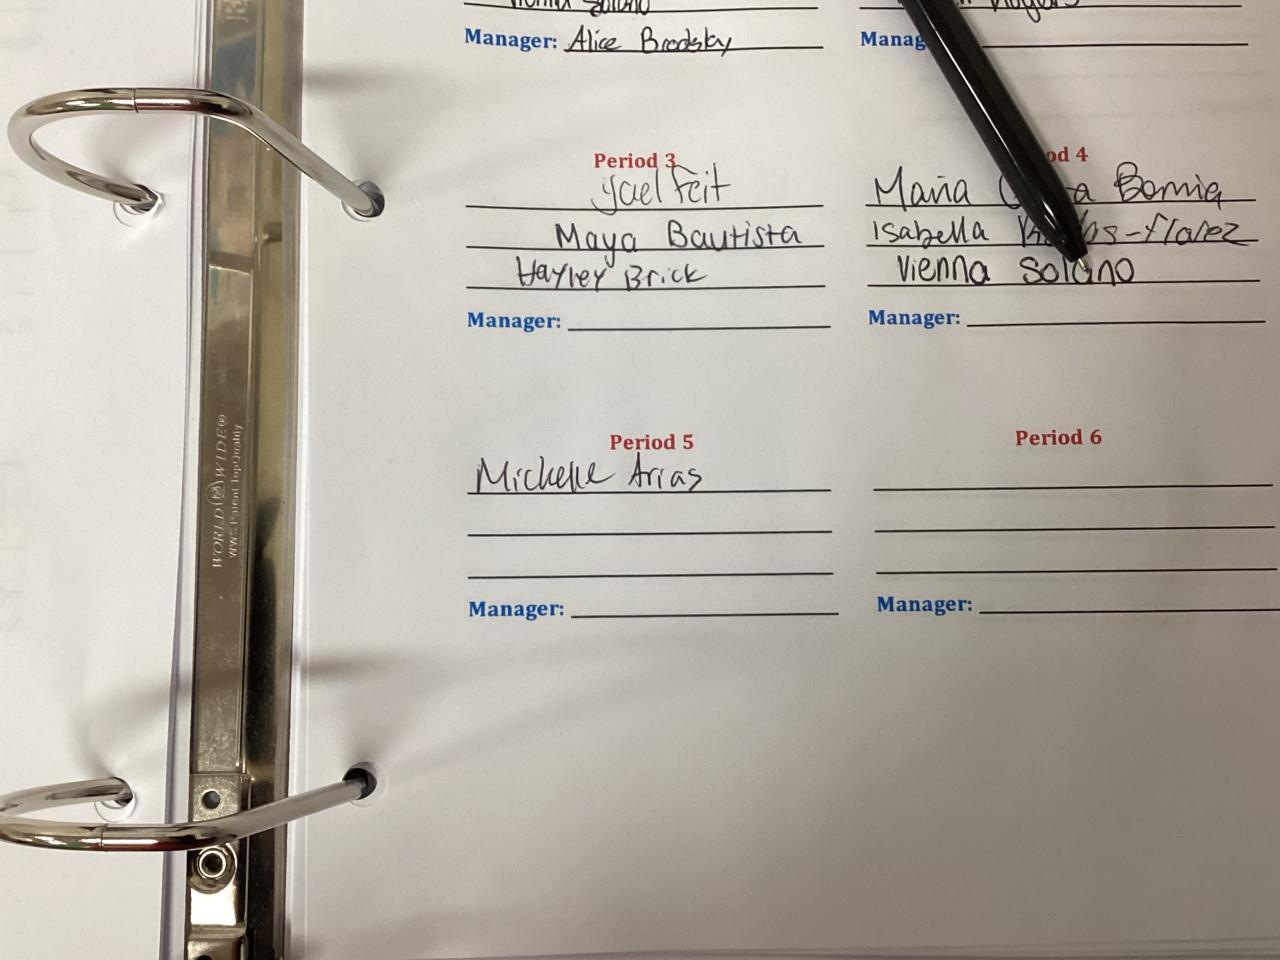 Solano
Manager: Alice Brodsky
Manag
Period 3
Yael Feit
Maya Bautista
Hayley Brick
Manager:
od 4
Maria Bornia
Isabella
Vienna Solano
Manager:
Period 5
Michelle Arias
Manager:
Period 6
Manager:
WORLD WIDE®